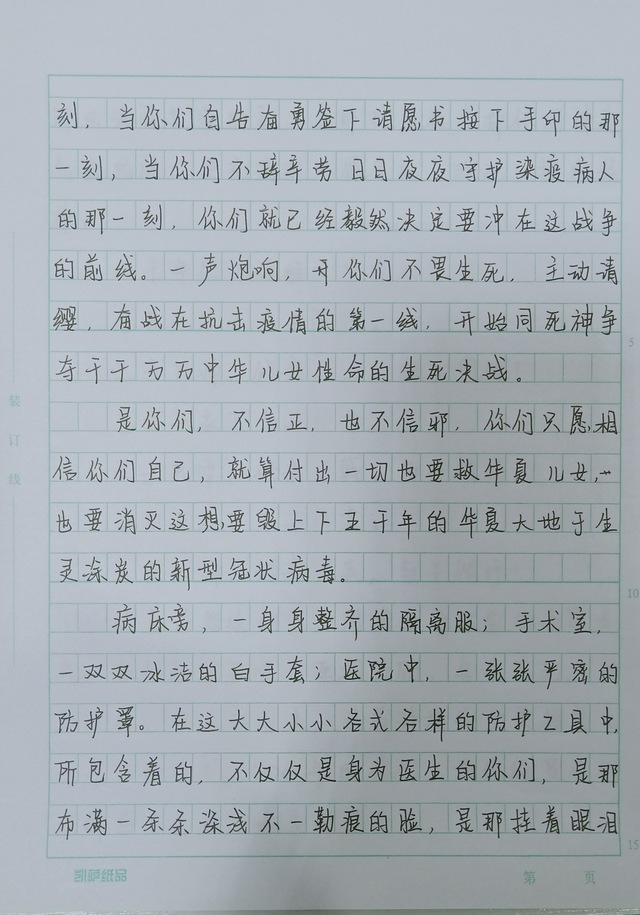 刻，当你们自告奋勇签下请愿书按下手印的那
一刻，当你们不辞辛劳日日夜夜守护染疫病人
的那一刻，你们就已经毅然决定要冲在这战争
的前线。一声炮响，开你们不畏生死，主动请
缨，奋战在抗击疫情的第一线，开始同死神争
5
夺千千万万中华儿女性命的生死决战。
装
是你们，不信正，也不信邪，你们只愿相
订
信你们自己，就算付出一切也要救华夏儿女，
线
也要消灭这想要毁上下五千年的华夏大地于生
灵涂炭的新型冠状病毒。
10
病床旁，一身身整齐的隔离服；手术室，
一双双冰洁的白手套；医院中，一张张严密的
防护罩。在这大大小小各式各样的防护工具中，
所包含着的，不仅仅是身为医生的你们，是那
布满一条条深浅不一勒痕的脸，是那挂着眼泪
15
凯萨纸品
第 页